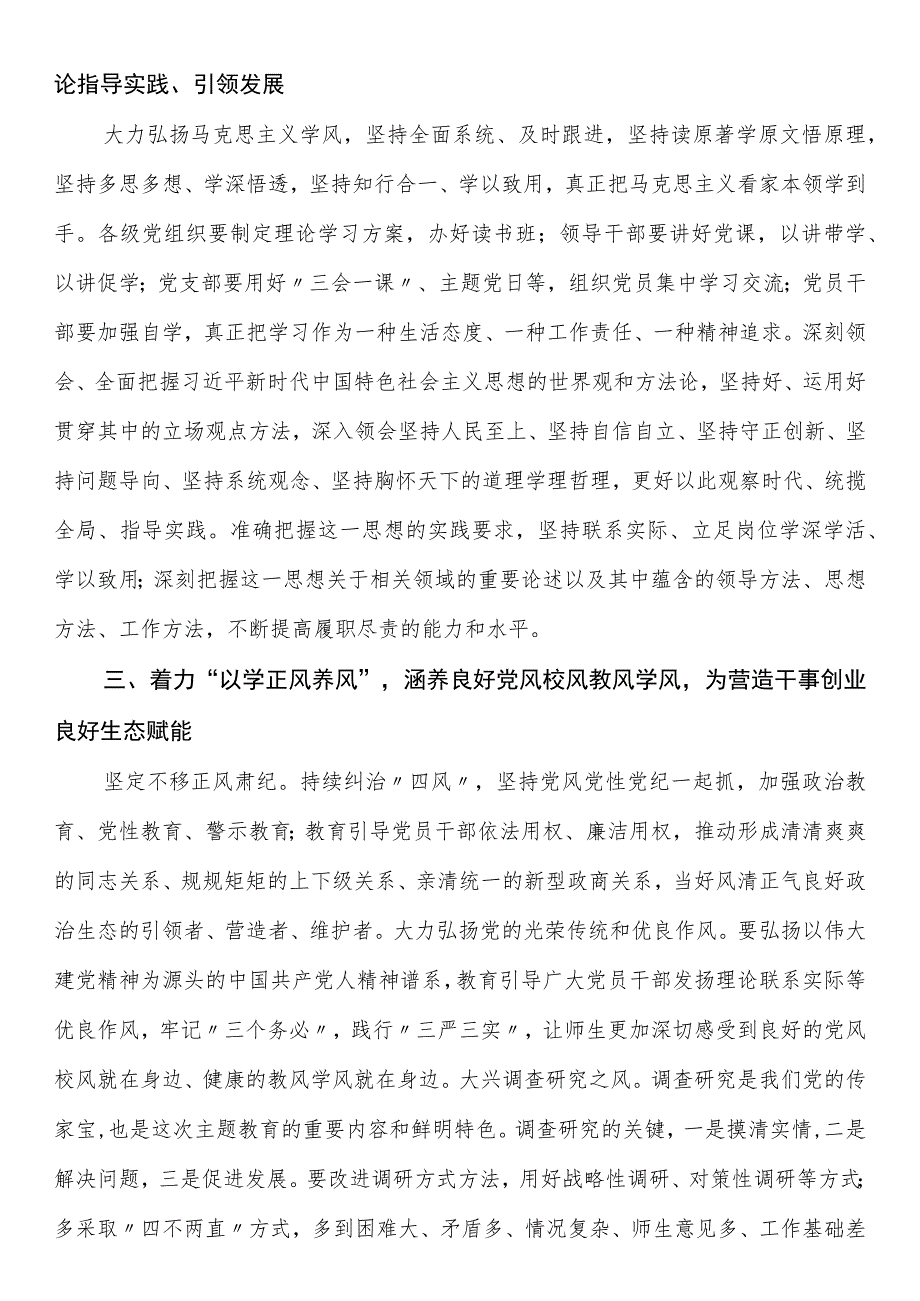 论指导实践、引领发展
大力弘扬马克思主义学风，坚持全面系统、及时跟进，坚持读原著学原文悟原理，
坚持多思多想、学深悟透，坚持知行合一、学以致用，真正把马克思主义看家本领学到
手。各级党组织要制定理论学习方案，办好读书班；领导干部要讲好党课，以讲带学、
以讲促学；党支部要用好〃三会一课〃、主题党日等，组织党员集中学习交流；党员干
部要加强自学，真正把学习作为一种生活态度、一种工作责任、一种精神追求。深刻领
会、全面把握习近平新时代中国特色社会主义思想的世界观和方法论，坚持好、运用好
贯穿其中的立场观点方法，深入领会坚持人民至上、坚持自信自立、坚持守正创新、坚
持问题导向、坚持系统观念、坚持胸怀天下的道理学理哲理，更好以此观察时代、统揽
全局、指导实践。准确把握这一思想的实践要求，坚持联系实际、立足岗位学深学活、
学以致用；深刻把握这一思想关于相关领域的重要论述以及其中蕴含的领导方法、思想
方法、工作方法，不断提高履职尽责的能力和水平。
三、着力“以学正风养风”，涵养良好党风校风教风学风，为营造干事创业
良好生态赋能
坚定不移正风肃纪。持续纠治〃四风〃，坚持党风党性党纪一起抓，加强政治教
育、党性教育、警示教育；教育引导党员干部依法用权、廉洁用权，推动形成清清爽爽
的同志关系、规规矩矩的上下级关系、亲清统一的新型政商关系，当好风清正气良好政
治生态的引领者、营造者、维护者。大力弘扬党的光荣传统和优良作风。要弘扬以伟大
建党精神为源头的中国共产党人精神谱系，教育引导广大党员干部发扬理论联系实际等
优良作风，牢记〃三个务必〃，践行〃三严三实〃，让师生更加深切感受到良好的党风
校风就在身边、健康的教风学风就在身边。大兴调查研究之风。调查研究是我们党的传
家宝，也是这次主题教育的重要内容和鲜明特色。调查研究的关键，一是摸清实情，二是
解决问题，三是促进发展。要改进调研方式方法，用好战略性调研、对策性调研等方式；
多采取〃四不两直〃方式，多到困难大、矛盾多、情况复杂、师生意见多、工作基础差